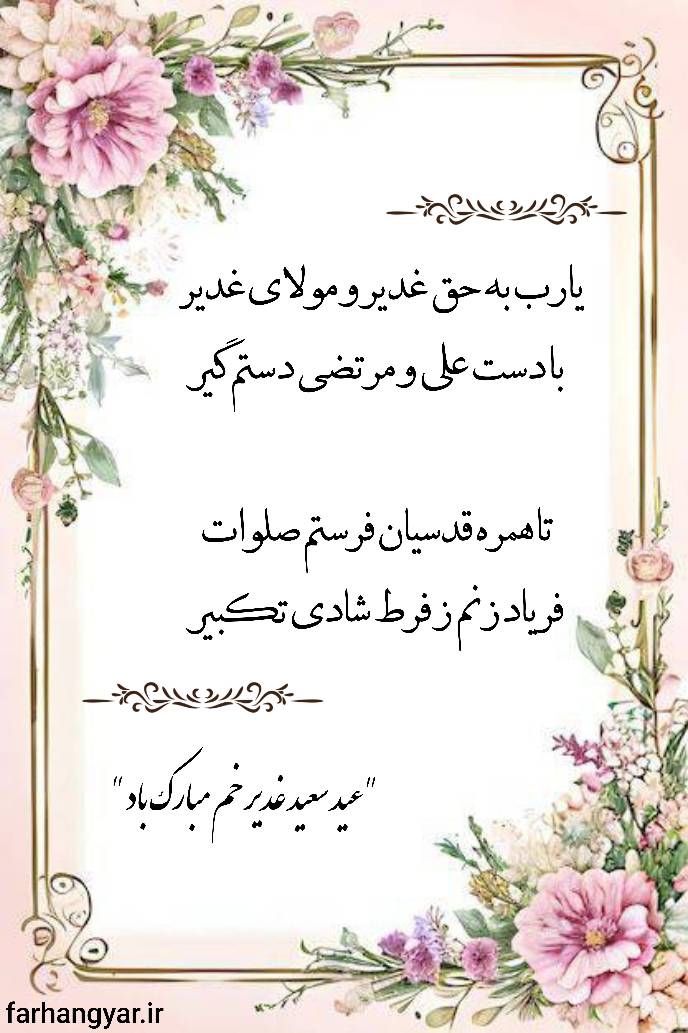 یارب به حق غدیر و مولای غدیر
با دست علی و مرتضی دستم گیر
تا همره قدسیان فرستم صلوات
فریاد زنم ز فرط شادی تکبیر
"عید سعید غدیر خم مبارک باد"
farhangyar.ir